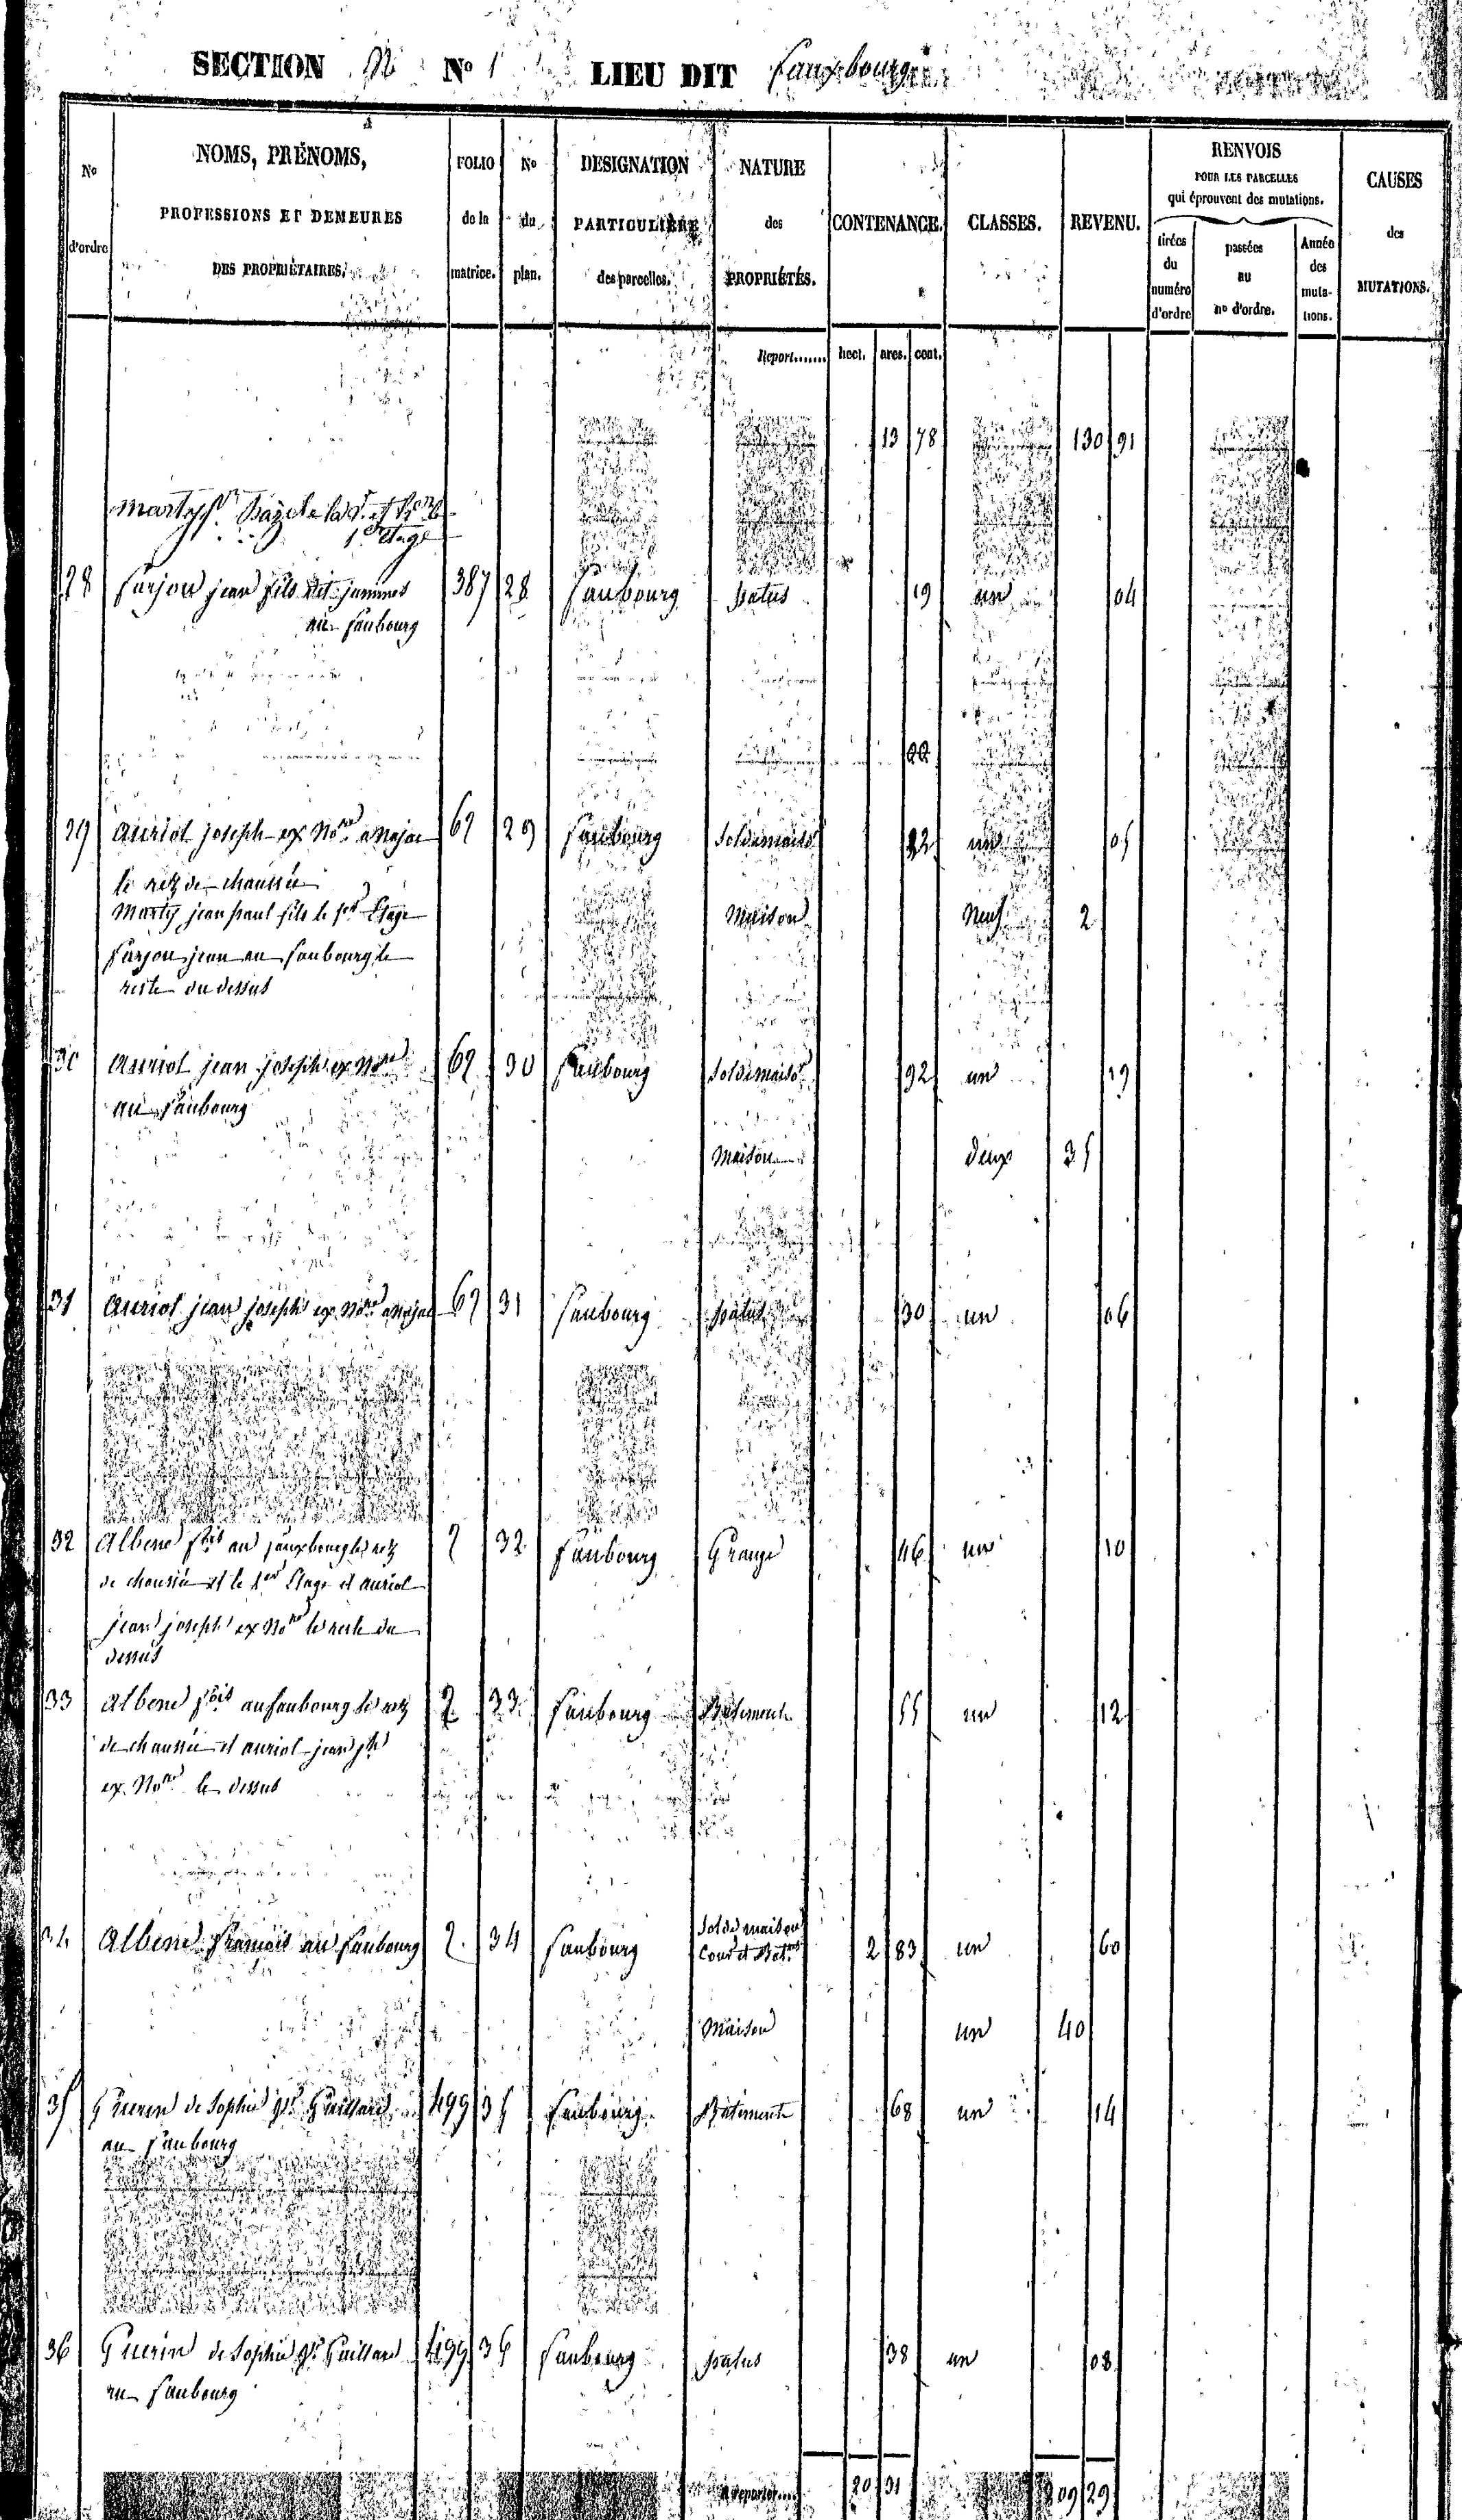 SECTION N° 1 LIEU DIT Fauxbourg
N° d'ordre
NOMS, PRÉNOMS,
PROFESSIONS ET DEMEURES
DES PROPRIÉTAIRES.
FOLIO de la matrice.
N° du plan.
DESIGNATION PARTICULIÈRE des parcelles.
NATURE des PROPRIÉTÉS.
CONTENANCE.
CLASSES.
REVENU.
RENVOIS
POUR LES PARCELLES
qui éprouvent des mutations.
tirées du numéro d'ordre
passées au n° d'ordre.
Année des mutations.
CAUSES des MUTATIONS.
Report....... hect. ares. cent.
13 78 130 91
1er Etage
28 farjou jean fils dit jammes 387 28 faubourg patus 19 un 04
au faubourg
29 auriol joseph ex Nore a Najac 62 29 faubourg Sol de maison 22 un 05
le retz de chaussée
Marty jean paul fils le 1er Etage Maison Neuf 2
farjou jean au faubourg le
reste du dessus
30 auriol jean joseph ex Nore 62 30 faubourg Sol de maison 92 un 19
au faubourg
Maison deux 35
31 auriol jean joseph ex Nore a Najac 62 31 faubourg patus 30 un 06
32 Albene fois au fauxbourg le retz 2 32 faubourg Grange 46 un 10
de chaussée et le 1er Etage et auriol
jean joseph ex Nore le reste du
dessus
33 albene fois au faubourg le retz 2 33 faubourg Batiment 55 un 12
de chaussée et auriol jean jph
ex Nore le dessus
34 Albene francois au faubourg 2 34 faubourg Sol de maison Cour et Batnt 2 83 un 60
Maison un 40
35 Guerin de Sophie Gaillard 499 35 faubourg Batiment 68 un 14
au faubourg
36 Guerin de Sophie Gaillard 499 36 faubourg patus 38 un 08
au faubourg
A reporter.... 20 31 209 29